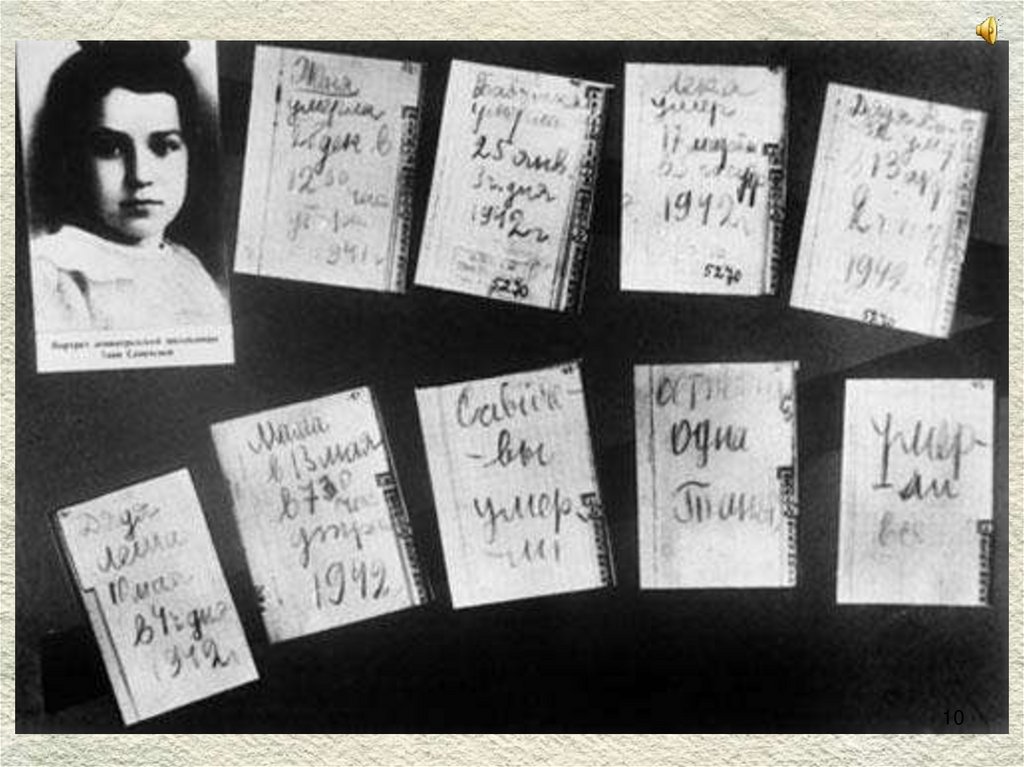 Портрет ленинградской школьницы
Тани Савичевой
Женя
умерла
28 дек в
12 30
час
утра
1941 г
Бабушка
умерла
25 янв.
3ч. дня
1942 г
5270
Лека
умер
17 марта
1942г
5270
Дядя Ва-
ся умер
в 13 апр
2 ч
1942г
5270
Дядя
Леша
10 мая
в 4ч дня
1942г
Мама
в 13 мая
в 7 30
час
утра
1942
Савиче-
-вы
умер
-ли
осталась
одна
Таня
Умер-
-ли
все
10